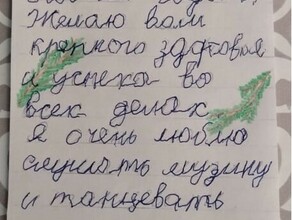 Желаю вам
крепкого здоровья
и успеха во
всех делах
Я очень люблю
слушать музыку
и танцевать